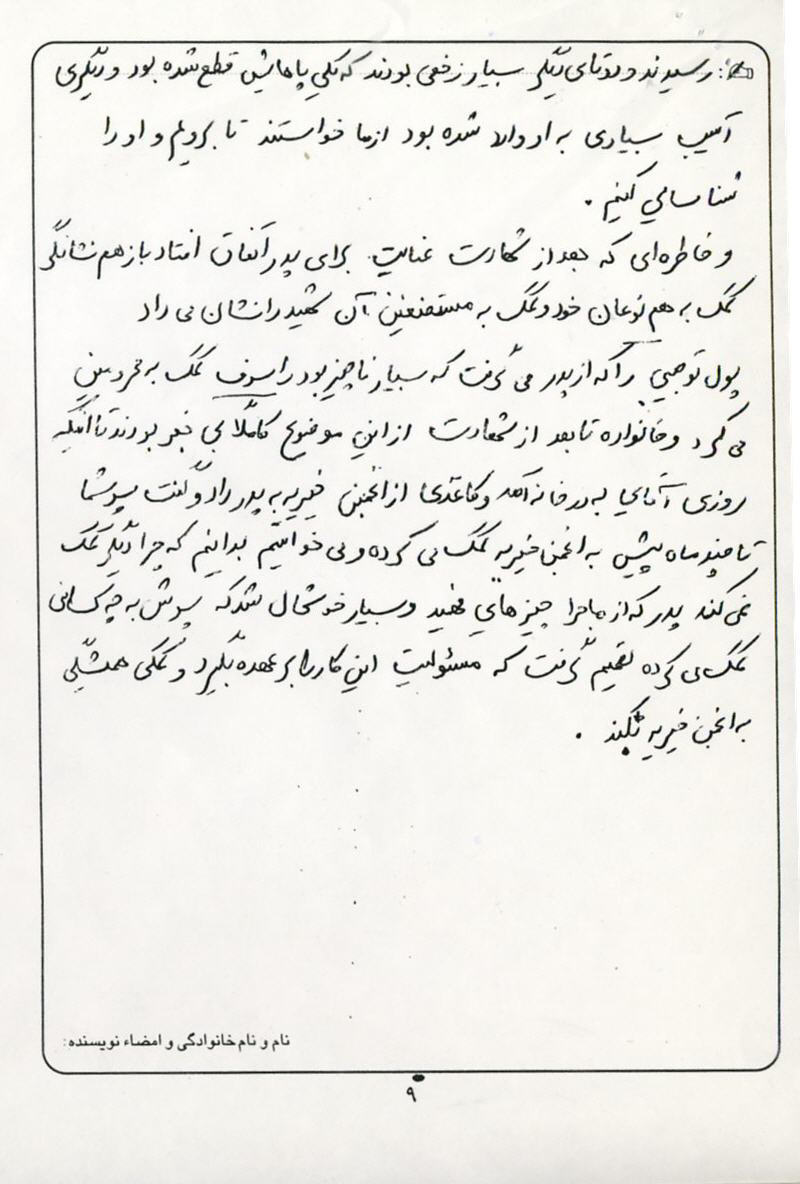 رسیدند و دوتای دیگر بسیار زخمی بودند که یکی پاهایش قطع شده بود و دیگری
آسیب بسیاری به او وارد شده بود از ما خواستند تا برویم و او را
شناسایی کنیم .
و خاطره‌ای که بعد از شهادت عنایت برای پدر اتفاق افتاد باز هم نشانگر
کمک به هم نوعان خود و کمک به مستضعفین آن شهید را نشان می داد
پول توجیبی را که از پدر می گرفت که بسیار ناچیز بود را صرف کمک به محرومین
می کرد و خانواده تا بعد از شهادت از این موضوع کاملاً بی خبر بودند تا اینکه
روزی آقایی به در خانه آمد و کاغذی از انجمن خیریه به پدر داد و گفت پسر شما
تا چند ماه پیش به انجمن خیریه کمک می کرده و می خواستیم بدانیم که چرا دیگر کمک
نمی کند پدر که از ماجرا چیزهایی فهمید و بسیار خوشحال شد که پسرش به چه کسانی
کمک می کرده تصمیم گرفت که مسئولیت این کار را بر عهده بگیرد و کمکی همیشگی
به انجمن خیریه بکند .
نام و نام خانوادگی و امضاء نویسنده:
۹